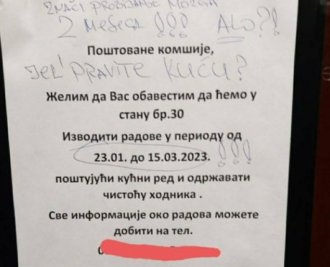 ZNAČI PROBIJANJE MOZGA
2 MESECA !!! ALO?!
Поштоване комшије,
JEL' PRAVITE KUĆU?
Желим да Вас обавестим да ћемо у
стану бр.30
Изводити радове у периоду од
23.01. до 15.03.2023. !!!
поштујући кућни ред и одржавати
чистоћу ходника .
Све информације око радова можете
добити на тел.